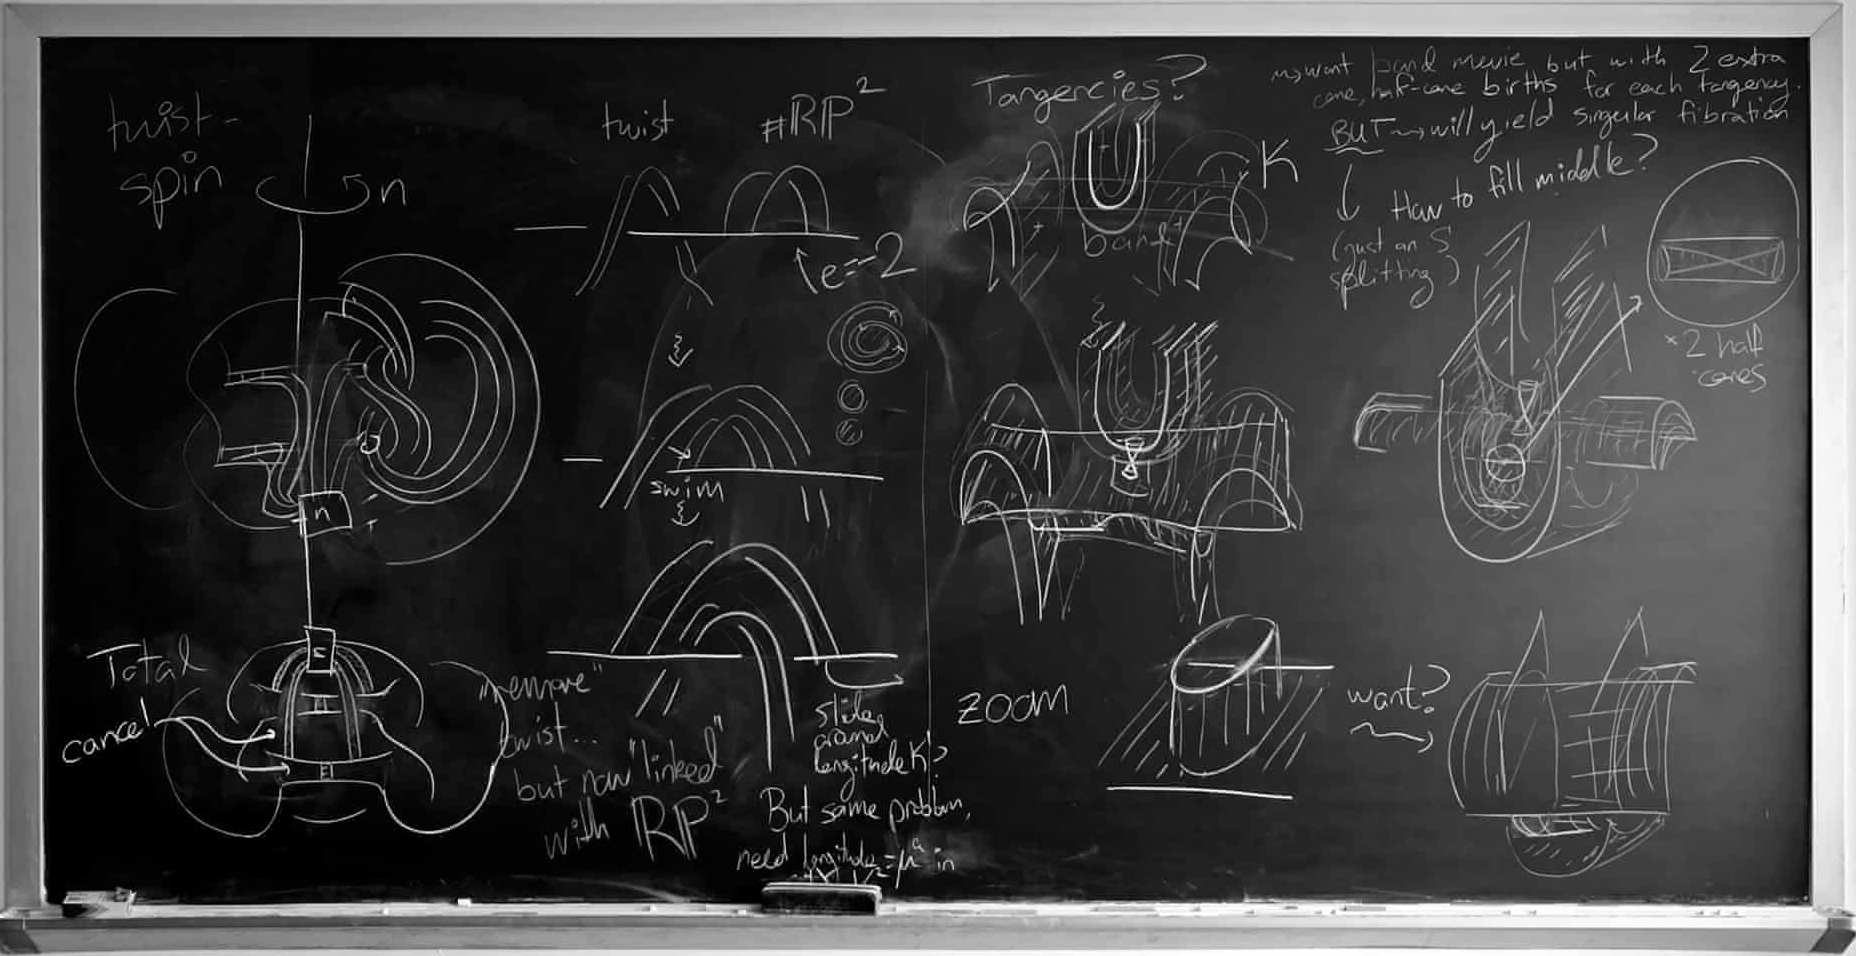 twist-
spin
n
n
Total
cancel
twist
#RP²
e=-2
swim
"remove"
twist...
but now "linked"
with RP²
slides
around
longitude K?
But same problem,
need longitude = μᵃ in
Tangencies?
K
band
zoom
want?
~>want band movie but with 2 extra
cone, half-cone births for each tangency.
BUT ~> will yield singular fibration
How to fill middle?
(just an S
splitting)
*2 half
cones